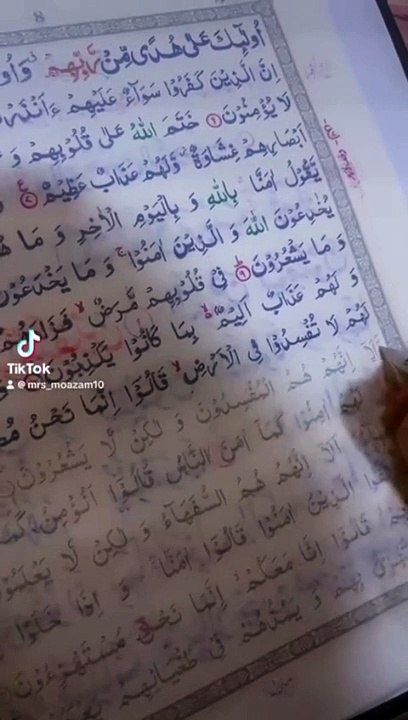 8
أُولٰٓئِكَ عَلٰى هُدًى مِّنْ رَّبِّهِمْ وَاُو
اِنَّ الَّذِيْنَ كَفَرُوْا سَوَآءٌ عَلَيْهِمْ ءَاَنْذَر
لَا يُؤْمِنُوْنَ ۝ خَتَمَ اللّٰهُ عَلٰى قُلُوْبِهِمْ وَ
اَبْصَارِهِمْ غِشَاوَةٌ وَّلَهُمْ عَذَابٌ عَظِيْمٌ
يَّقُوْلُ اٰمَنَّا بِاللّٰهِ وَ بِالْيَوْمِ الْاٰخِرِ وَ مَا هُ
يُخٰدِعُوْنَ اللّٰهَ وَ الَّذِيْنَ اٰمَنُوْا ۚ وَ مَا يَخْدَعُوْنَ
وَ مَا يَشْعُرُوْنَ ۝٩ فِيْ قُلُوْبِهِمْ مَّرَضٌ ۙ فَزَادَهُمُ
وَ لَهُمْ عَذَابٌ اَلِيْمٌ ۙ بِمَا كَانُوْا يَكْذِبُوْنَ
لَهُمْ لَا تُفْسِدُوْا فِي الْاَرْضِ ۙ قَالُوْٓا اِنَّمَا نَحْنُ مُص
اَلَاۤ اِنَّهُمْ هُمُ الْمُفْسِدُوْنَ وَ لٰكِنْ لَّا يَشْعُرُوْنَ
لَهُمْ اٰمِنُوْا كَمَاۤ اٰمَنَ النَّاسُ قَالُوْٓا اَنُؤْمِنُ كَمَاۤ
اَلَاۤ اِنَّهُمْ هُمُ السُّفَهَآءُ وَ لٰكِنْ لَّا يَعْلَمُوْنَ
الَّذِيْنَ اٰمَنُوْا قَالُوْٓا اٰمَنَّا وَ اِذَا خَلَوْا
قَالُوْٓا اِنَّا مَعَكُمْ اِنَّمَا نَحْنُ مُسْتَهْزِءُوْنَ
بِهِمْ وَ يَمُدُّهُمْ فِيْ طُغْيَانِهِمْ
منزل
TikTok
@mrs_moazam10